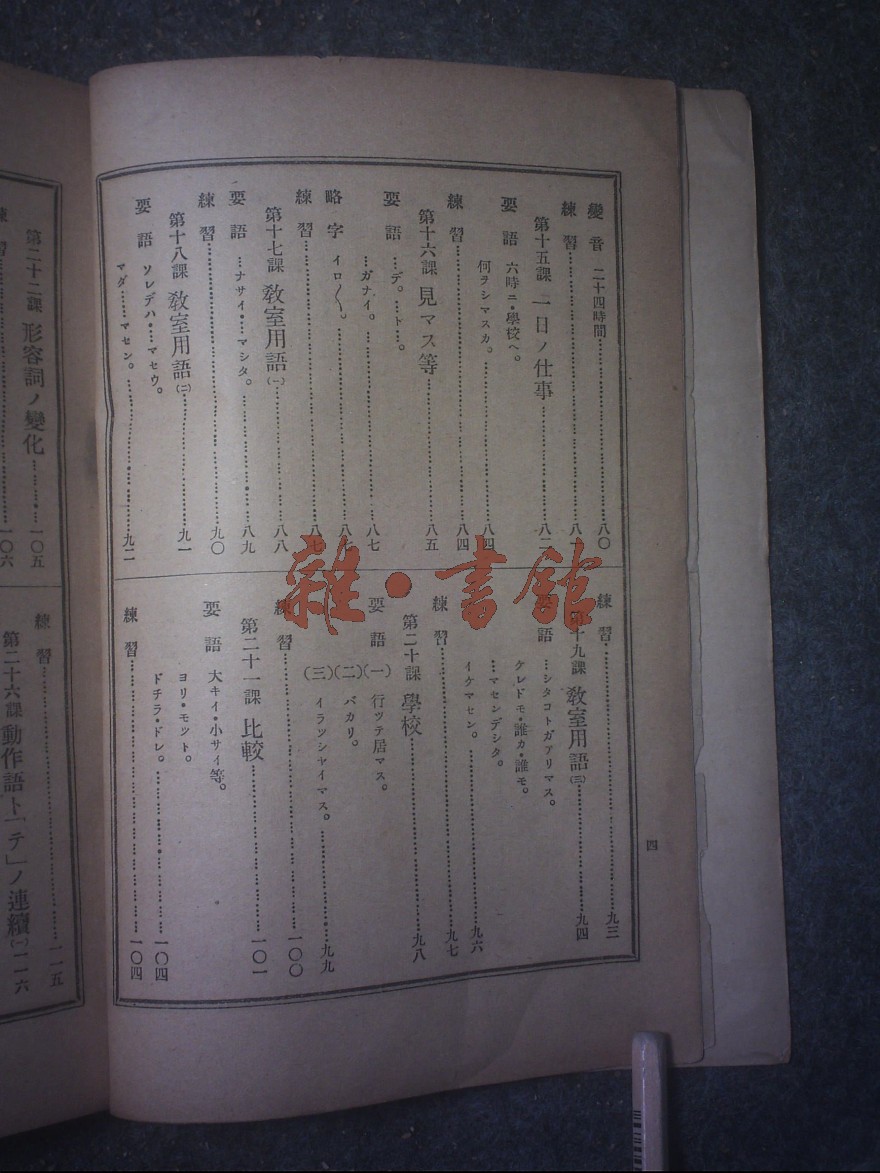 變音 二十四時間……八〇
練習……八一
第十五課 一日ノ仕事……八二
要語 六時ニ・學校ヘ。
何ヲシマスカ。……八四
練習……八四
第十六課 見マス等……八五
要語 …デ。…ト…。
…ガナイ。……八七
略字 イロ〱。……八七
練習……八七
第十七課 敎室用語(一)……八八
要語 …ナサイ・…マシタ。……八九
練習……九〇
第十八課 敎室用語(二)……九一
要語 ソレデハ・…マセウ。
マダ……マセン。……九二
練習……九三
第十九課 敎室用語(三)……九四
語 …シタコトガアリマス。
ケレドモ・誰カ・誰モ。
…マセンデシタ。
イケマセン。……九六
練習……九七
第二十課 學校……九八
要語(一) 行ツテ居マス。
(二) バカリ。
(三) イラツシヤイマス。……九九
練習……一〇〇
第二十一課 比較……一〇一
要語 大キイ・小サイ等。
ヨリ・モツト。
ドチラ・ドレ。……一〇四
練習……一〇四
四
雜·書館
第二十二課 形容詞ノ變化……一〇五
練習……一〇六
練習……一一五
第二十六課 動作語ト「テ」ノ連續(一)一一六